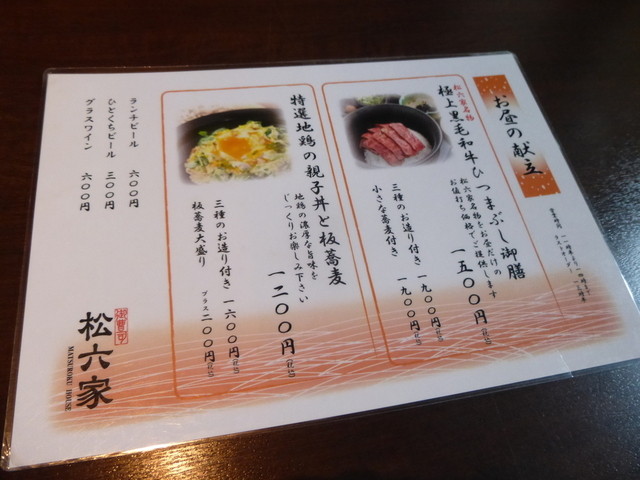 お昼の献立
松六家名物
極上黒毛和牛ひつまぶし御膳
松六家名物をお昼だけの
お値打ち価格でご提供します
一五〇〇円(税込)
三種のお造り付き 一九〇〇円(税込)
小さな蕎麦付き 一九〇〇円(税込)
特選地鶏の親子丼と板蕎麦
地鶏の濃厚な旨味を
じっくりお楽しみ下さい
一二〇〇円(税込)
三種のお造り付き 一六〇〇円(税込)
板蕎麦大盛り プラス二〇〇円(税込)
ランチビール 六〇〇円
ひとくちビール 三〇〇円
グラスワイン 六〇〇円
松六家
MATSUROKU HOUSE